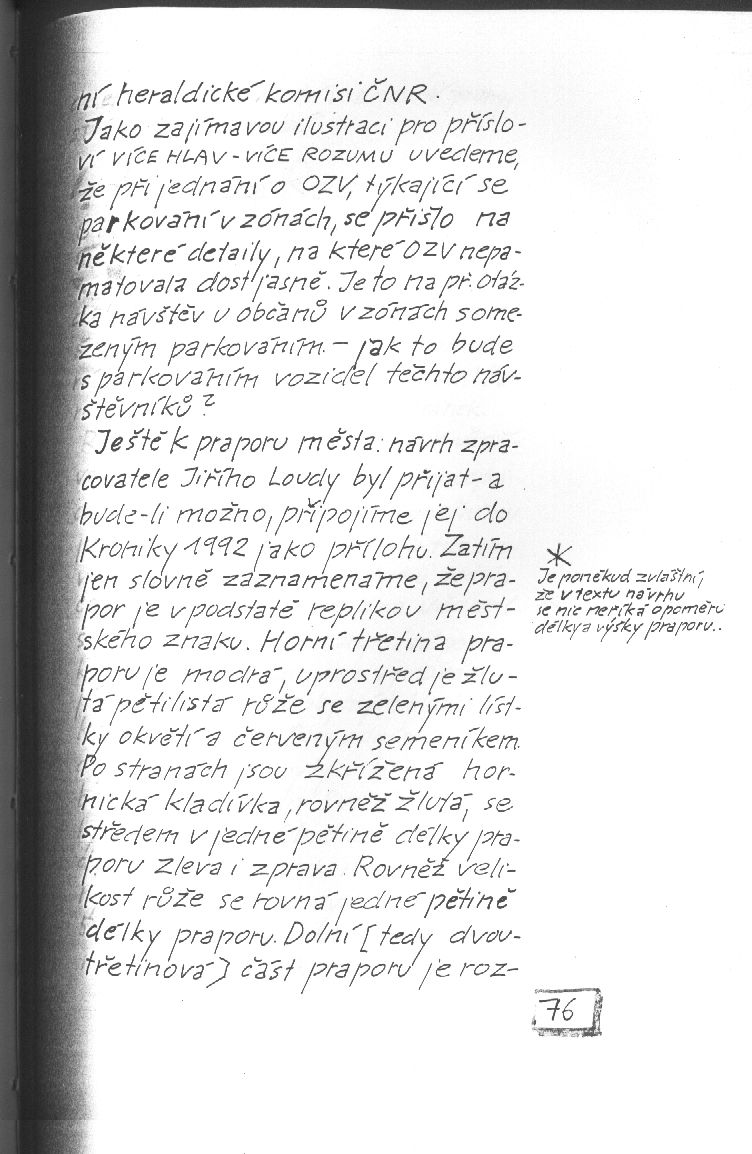 ní heraldické komisi ČNR.
Jako zajímavou ilustraci pro příslo-
ví VÍCE HLAV - VÍCE ROZUMU uvedeme,
že při jednání o OZV, týkající se
parkování v zónách, se přišlo na
některé detaily, na které OZV nepa-
matovala dost jasně. Je to na př. otáz-
ka návštěv u občanů v zónách s ome-
zeným parkováním. - jak to bude
s parkováním vozidel těchto náv-
štěvníků?
Ještě k praporu města: návrh zpra-
covatele Jiřího Loudy byl přijat - a
bude-li možno, připojíme jej do
Kroniky 1992 jako přílohu. Zatím
jen slovně zaznamenáme, že pra-
por je v podstatě replikou měst-
ského znaku. Horní třetina pra-
poru je modrá, uprostřed je žlu-
tá pětilistá růže se zelenými líst-
ky okvětí a červeným semeníkem.
Po stranách jsou zkřížená hor-
nická kladívka, rovněž žlutá, se
středem v jedné pětině délky pra-
poru zleva i zprava. Rovněž veli-
kost růže se rovná jedné pětině
délky praporu. Dolní [tedy dvou-
třetinová] část praporu je roz-
*
Je poněkud zvláštní,
že v textu návrhu
se nic neříká o poměru
délky a výšky praporu..
76